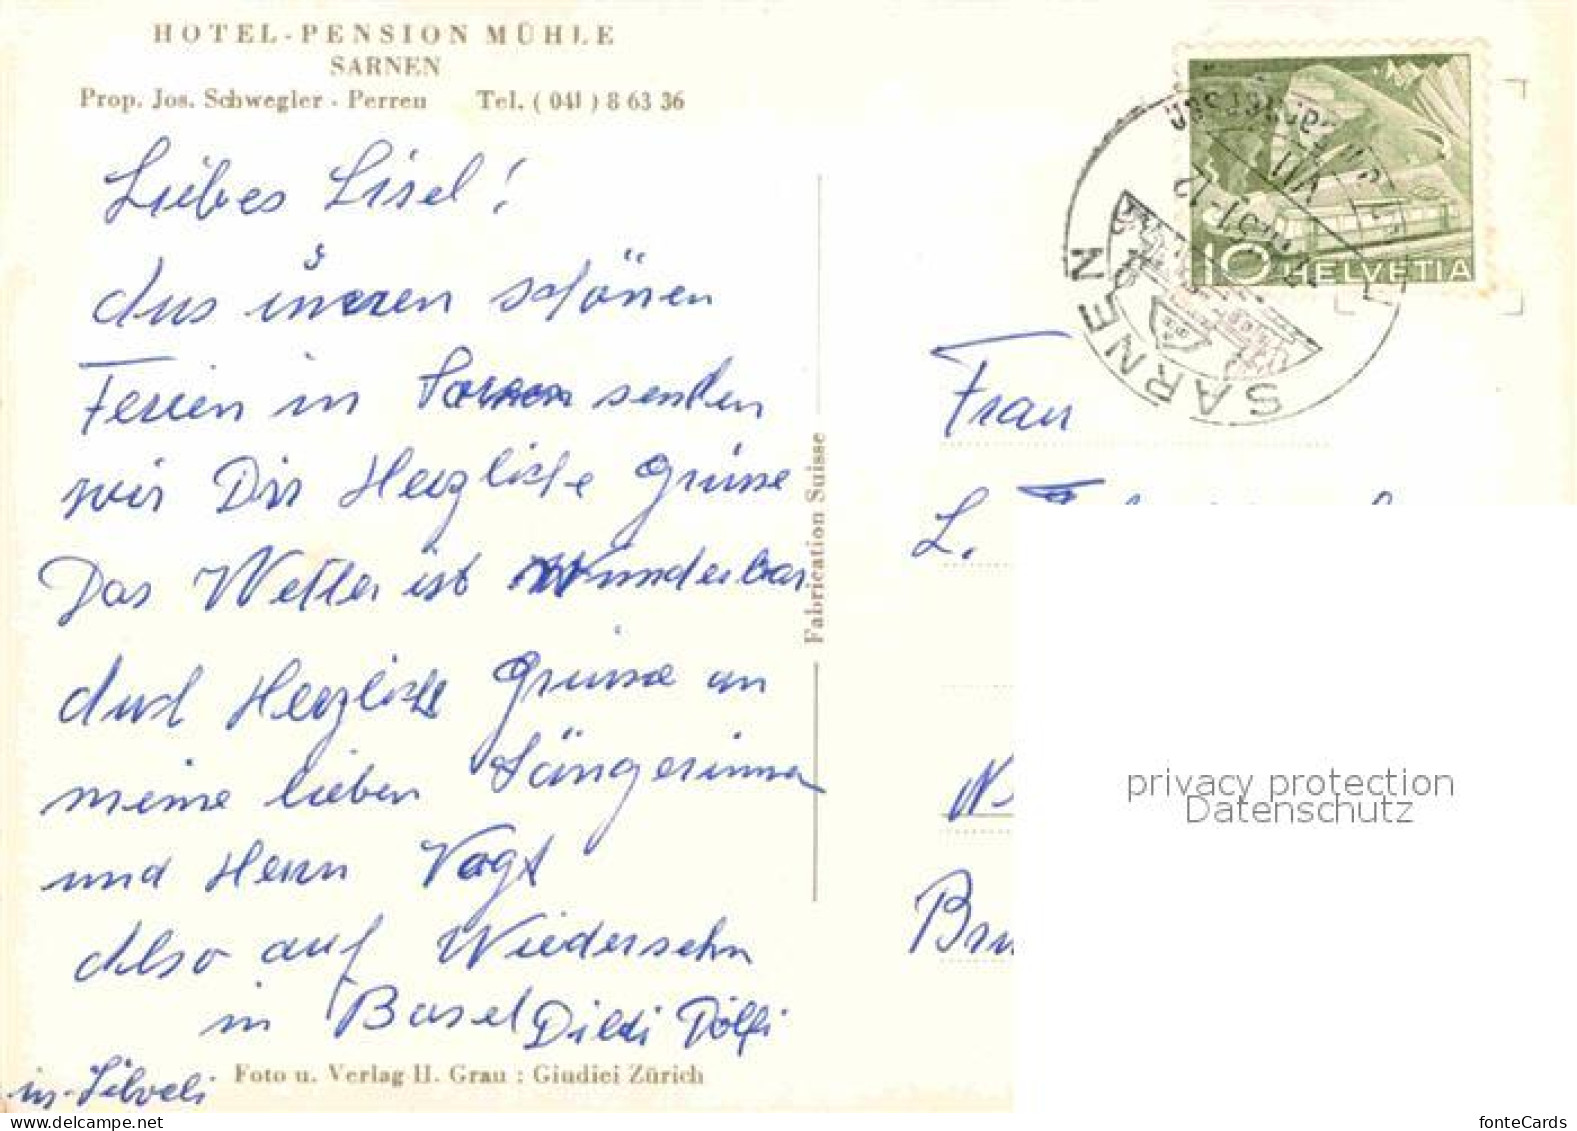 HOTEL-PENSION MÜHLE
SARNEN
Prop. Jos. Schwegler - Perren Tel. (041) 8 63 36
Liebes Lisel!
Aus unseren schönen
Ferien in Sarnen senden
wir Dir Herzliche Grüsse
Das Wetter ist Wunderbar
auch Herzliche Grüsse an
meine lieben Sängerinnen
und Herrn Vogt
Also auf Wiedersehn
in Basel Dildi Dölfi
Foto u. Verlag H. Grau : Giudici Zürich
Fabrication Suisse
10 HELVETIA
SARNEN
Frau
L.
privacy protection
Datenschutz
fonteCards